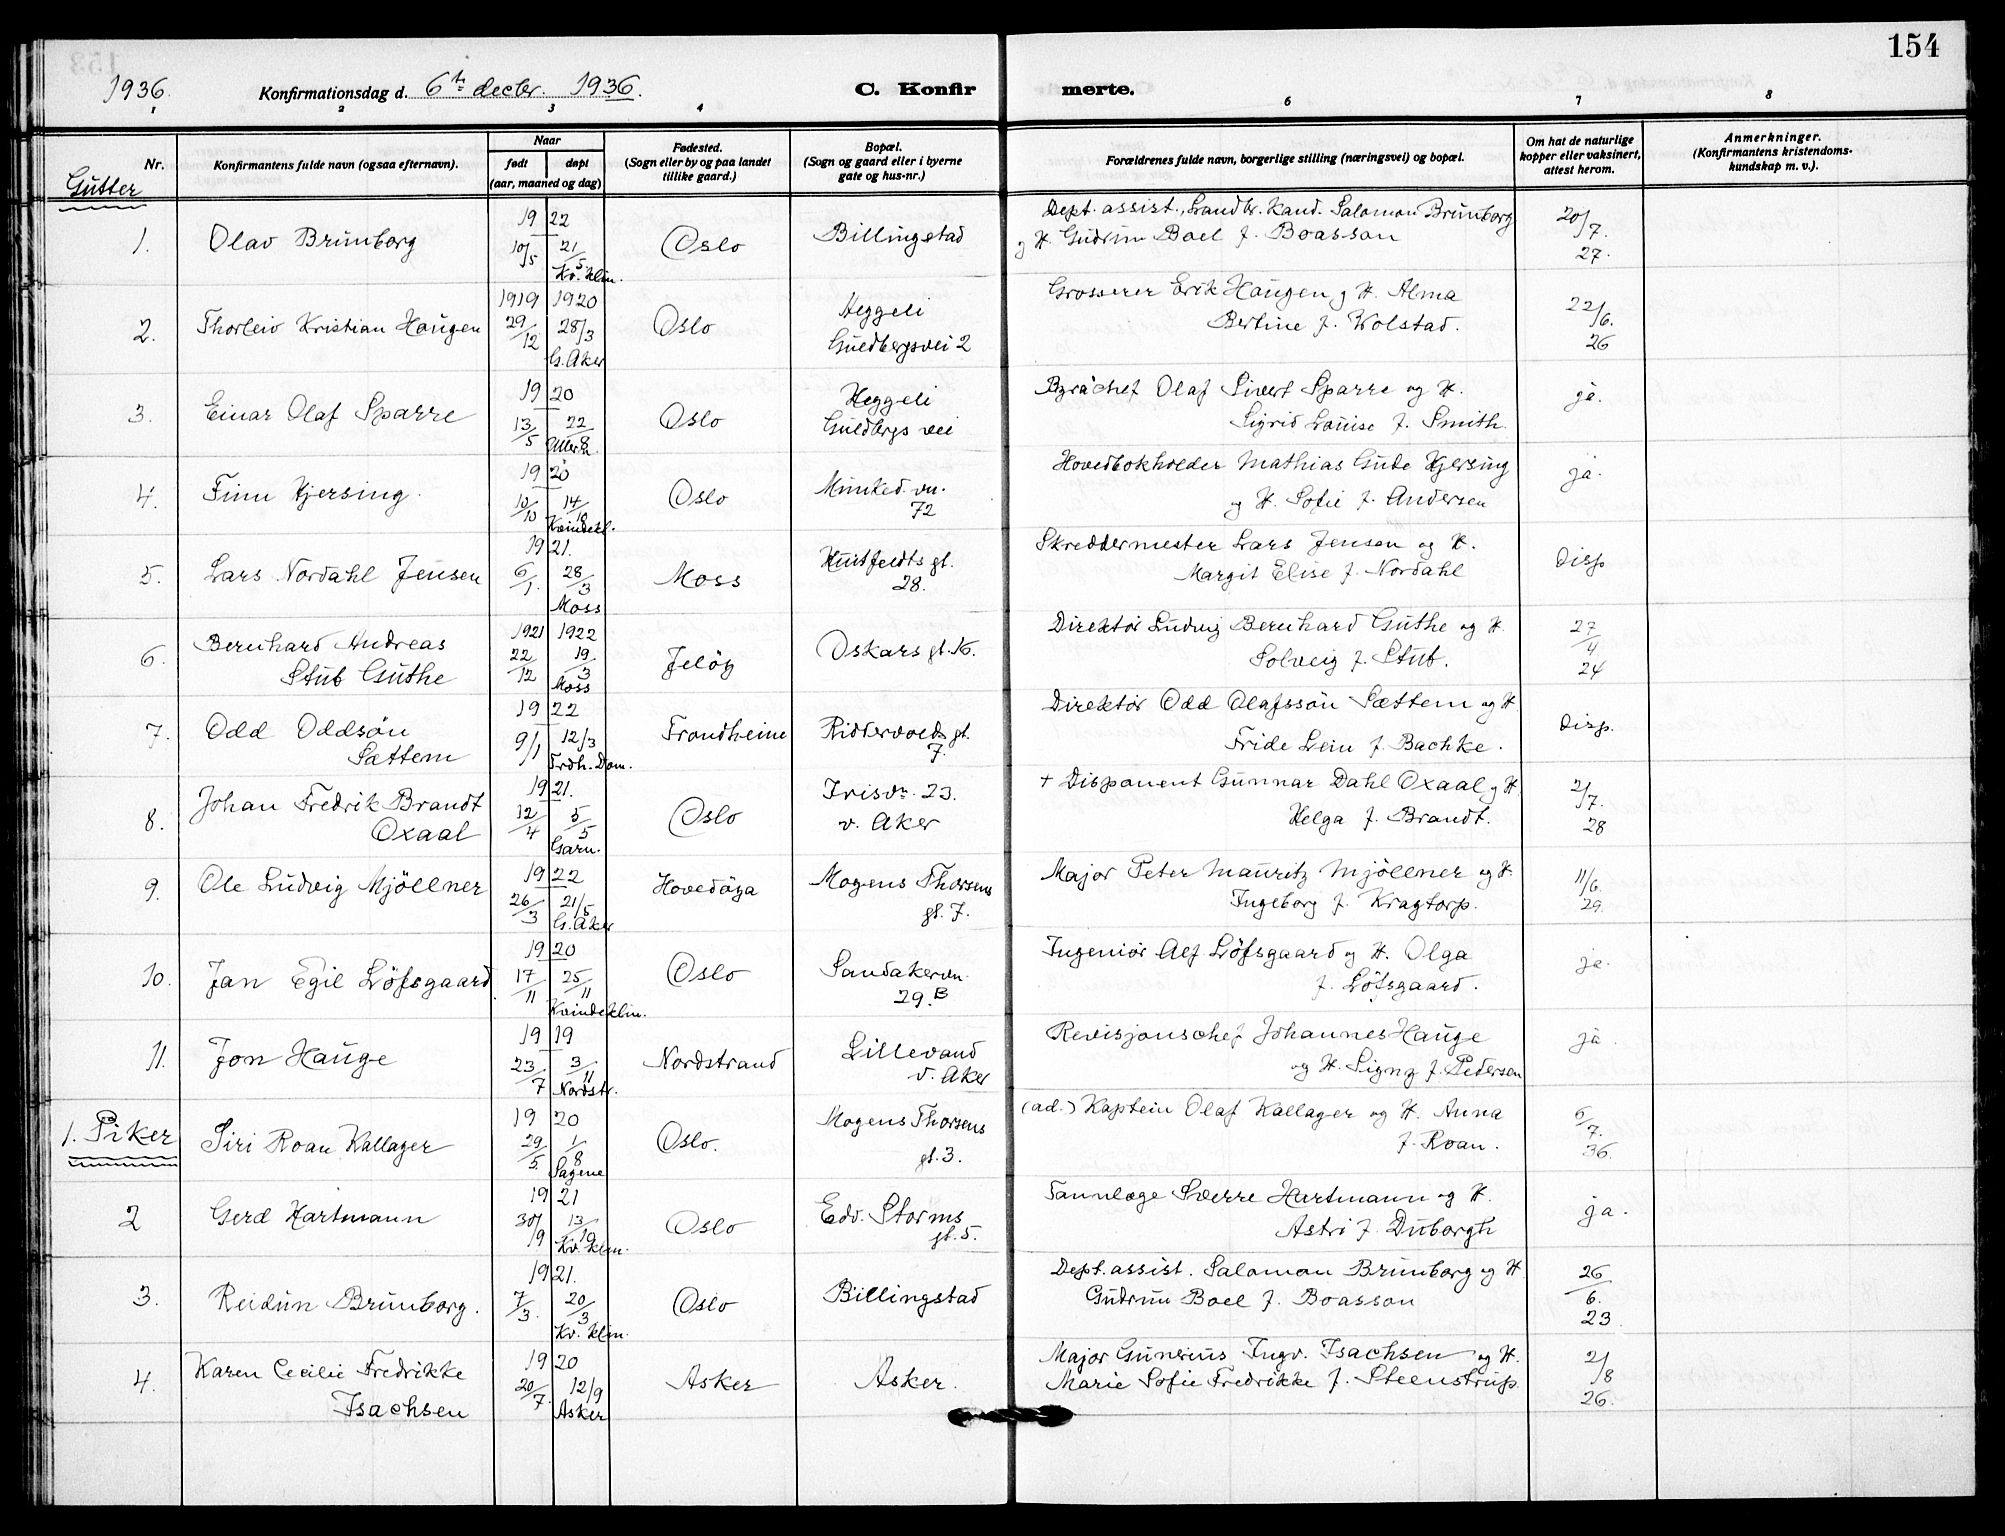 154
1936. Konfirmationsdag d. 6te decbr. 1936. C. Konfirmerte.
1 2 3 4 6 7 8
Nr. Konfirmantens fulde navn (ogsaa efternavn). Naar født døpt (aar, maaned og dag) Fødested. (Sogn eller by og paa landet tillike gaard.) Bopæl. (Sogn og gaard eller i byerne gate og hus-nr.) Forældrenes fulde navn, borgerlige stilling (næringsvei) og bopæl. Om hat de naturlige kopper eller vaksinert, attest herom. Anmerkninger. (Konfirmantens kristendoms-kundskap m. v.).
Gutter
1. Olav Brunborg 1922 10/5 21/5 Kv. klin. Oslo Billingstad Dept. assist., Landbr. Kand. Salomon Brunborg og H. Gudrun Boel f. Boasson 20/7. 27.
2. Thorleiv Kristian Haugen 1919 29/12 1920 28/3 G. Aker Oslo Heggeli Guldbergsvei 2 Grosserer Erik Haugen og H. Alma Bertine f. Wolstad. 22/6. 26
3. Einar Olaf Sparre 1920 13/5 22/8 Ullersh. Oslo Heggeli Guldbergs vei Byråchef Olaf Sivert Sparre og H. Sigrid Louise f. Smith. ja.
4. Finn Hjersing. 1920 10/10 14/10 Kvindekl. Oslo Munked. vn. 72 Hovedbokholder Mathias Gude Hjersing og H. Sofie f. Andersen ja.
5. Lars Nordahl Jensen 1921. 6/1. 28/3 Moss Moss Huitfeldts gt. 28. Skreddermester Lars Jensen og H. Margit Elise f. Nordahl Disp
6. Bernhard Andreas Stub Guthe 1921 22/12 1922 19/3 Moss Jeløy Oskars gt. 16. Direktør Ludvig Bernhard Guthe og H. Solveig f. Stub. 27/4 24
7. Odd Oddsøn Sættem 1922 9/1 12/3 Trdh. Dom. Trondheim Riddervolds gt. 7. Direktør Odd Olafssøn Sættem og H. Fride Lein f. Bachke. Disp.
8. Johan Fredrik Brandt Oxaal 1921. 12/4 5/5 Garn. Oslo Irisvn. 23. v. Aker + Disponent Gunnar Dahl Oxaal og H. Helga f. Brandt. 2/7. 28
9. Ole Ludvig Mjöllner 1922 26/3 21/5 G. Aker Hovedøya Mogens Thorsens gt. 7. Major Peter Mauritz Mjöllner og H. Ingeborg f. Kragtorp. 11/6. 29.
10. Jan Egil Löfsgaard 1920 17/11 25/11 Kvindeklin. Oslo Sandakervn. 29. B Ingeniør Alf Löfsgaard og H. Olga f. Löfsgaard. ja.
11. Jon Hauge 1919 23/7 3/11 Nordstr. Nordstrand Lillevand v. Aker Revisjonschef Johannes Hauge og H. Signy f. Pedersen ja
1. Piker Siri Roan Kallager 1920 29/5 1/8 Sagene Oslo. Mogens Thorsens gt. 3. (ad.) Kaptein Olaf Kallager og H. Anna f. Roan. 6/7. 36.
2 Gerd Hartmann 1921 30/9 13/10 Kv. klin. Oslo Edv. Storms gt. 5. Tannlæge Sverre Hartmann og H. Astri f. Duborgh ja.
3. Reidun Brunborg. 1921. 7/3. 20/3 Kv. klin. Oslo Billingstad Dept. assist. Salomon Brunborg og H Gudrun Boel f. Boasson 26/6. 23
4. Karen Cecilie Fredrikke Isachsen 1920 20/7. 12/9 Asker Asker Asker. Major Gunerius Ingv. Isachsen og H. Marie Sofie Fredrikke f. Steenstrup. 2/8 26.